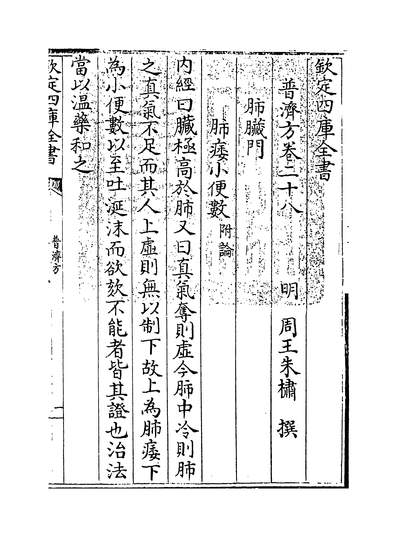 欽定四庫全書
普濟方卷二十八
明 周王朱橚 撰
肺臟門
肺痿小便數附論
內經曰臟極高於肺又曰真氣奪則虛今肺中冷則肺
之真氣不足而其人上虛則無以制下故上為肺痿下
為小便數以至吐涎沫而欲欬不能者皆其證也治法
當以温藥和之
欽定四庫全書
普濟方